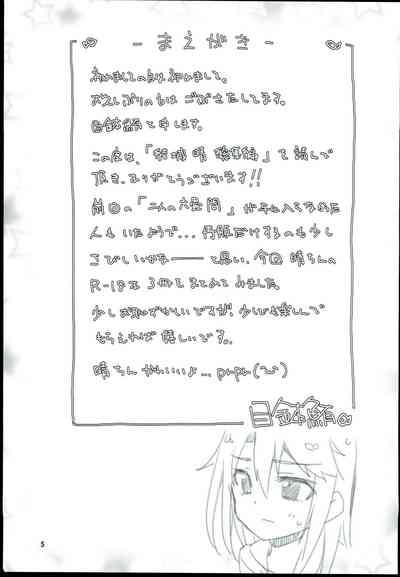 - まえがき -
初めましての方は初めまして。
お久しぶりの方はごぶさたしてます。
と申します。
この度は、「結城晴 総集編」を読んで
頂き、ありがとうございます!!
前回の「二人の」が手に入らなかった
人もいたようで...再販だけするのも少し
さびしいかな――と思い、今回 晴ちんの
R-18を3冊まとめてみました。
少しお恥ずかしいですが、少しでも楽しんで
もらえれば嬉しいです。
晴ちんかわいいよ... prpr
5